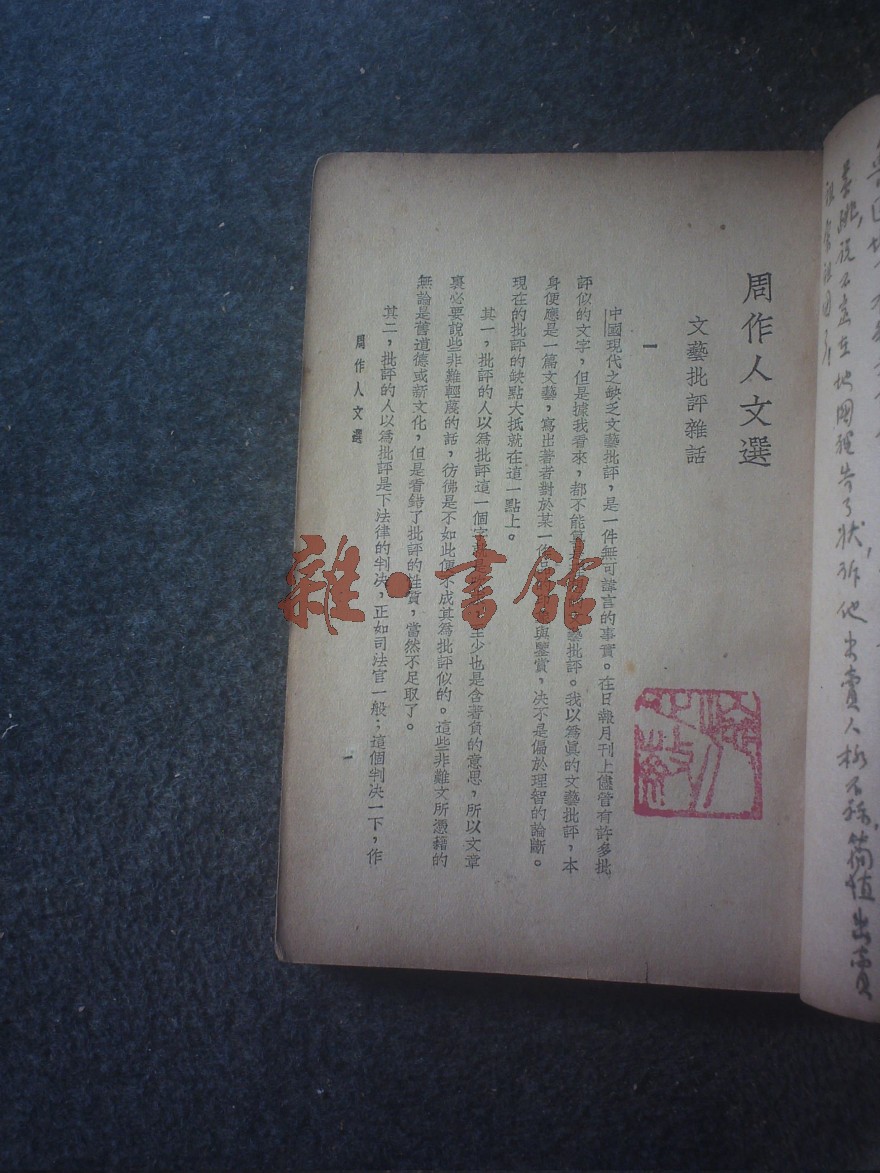 周作人文選
文藝批評雜話
一
中國現代之缺乏文藝批評，是一件無可諱言的事實。在日報月刊上儘管有許多批
評似的文字，但是據我看來，都不能算 藝批評。我以爲眞的文藝批評，本
身便應是一篇文藝，寫出著者對於某一 與鑒賞，决不是偏於理智的論斷。
現在的批評的缺點大抵就在這一點上。
其一，批評的人以爲批評這一個字 至少也是含著負的意思，所以文章
裏必要說些非難輕蔑的話，彷彿是不如此便不成其爲批評似的。這些非難文所憑藉的
無論是舊道德或新文化，但是看錯了批評的性質，當然不足取了。
其二，批評的人以爲批評是下法律的判决，正如司法官一般；這個判决一下，作
周作人文選
一
雜·書館
說不定在地國裡告了狀，訴他出賣人格不夠，簡值出賣